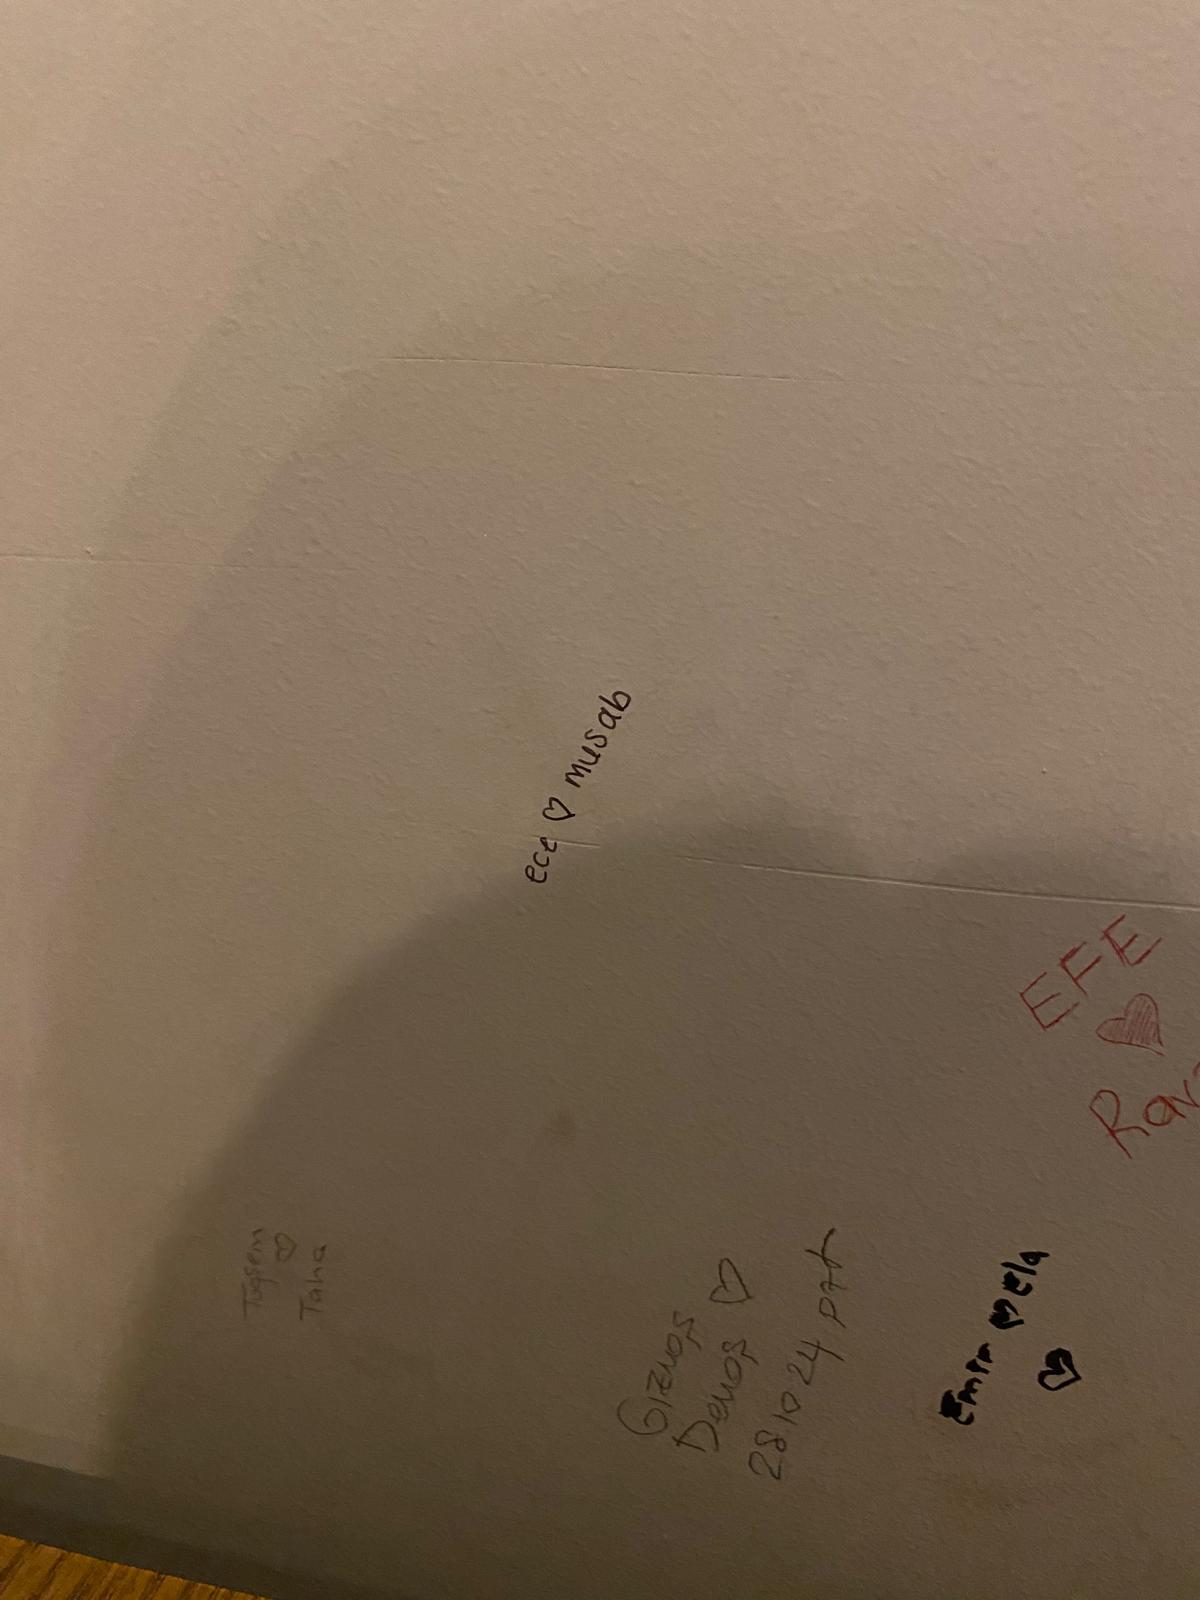 ece ♡ musab
EFE
♥
Tuğsem
♡
Taha
Gıznoş
Denoş ♡
28 10 24 pzt
Emir ♥ Ela
♥